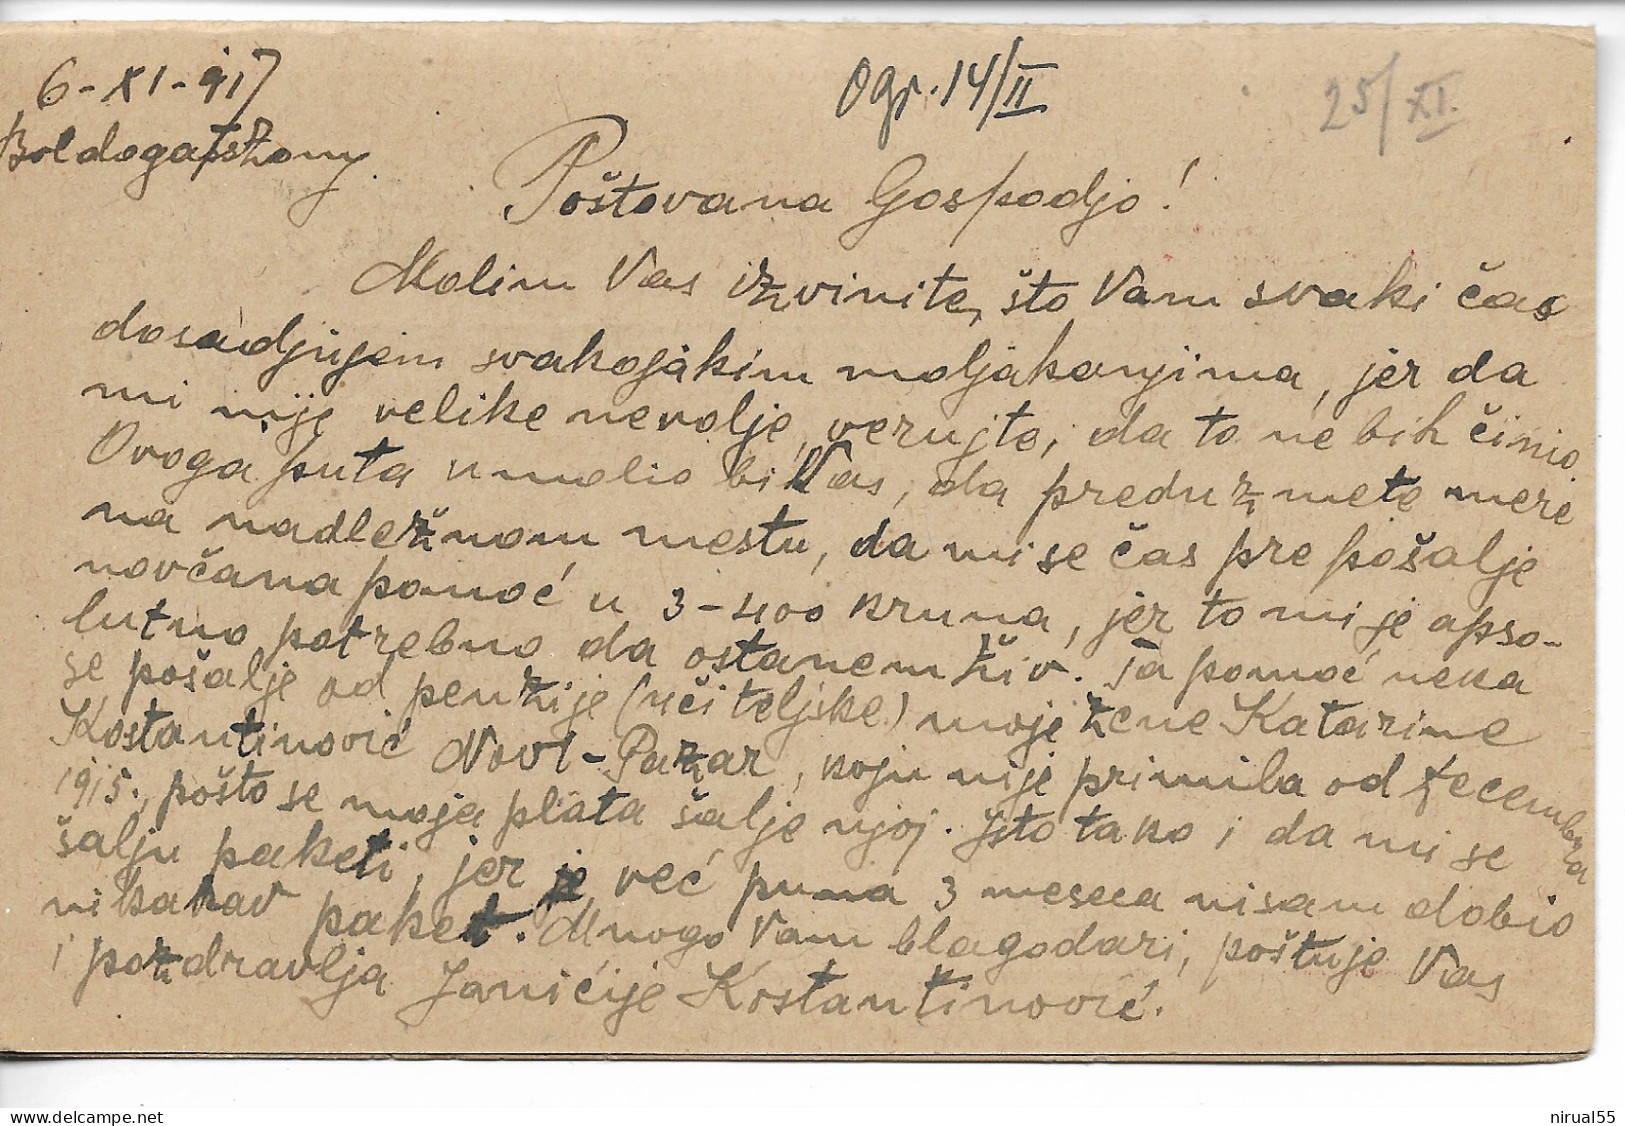 6-XI-917
Boldogaszony.
Ogr. 14/II
25/XI.
Poštovana Gospodjo!
Molim Vas izvinite, što Vam svaki čas
dosadjujem svakojakim moljakanjima, jer da
mi nije velike nevolje, verujte, da to ne bih činio
Ovoga puta umolio bi Vas, da preduzmete mere
na nadležnom mestu, da mi se čas pre pošalje
novčana pomoć u 3-400 kruna, jer to mi je apso-
lutno potrebno da ostanem živ. Ta pomoć neka
se pošalje od penzije (učiteljske) moje žene Katarine
Kostantinović Novi-Pazar, koju nije primila od decembra
1915., pošto se moja plata šalje njoj. Isto tako i da mi se
šalju paketi, jer je već puna 3 meseca nisam dobio
nikakav paket. Mnogo Vam blagodari, poštuje Vas
i pozdravlja Janićije Kostantinović.
nirual55
© delcampe.net